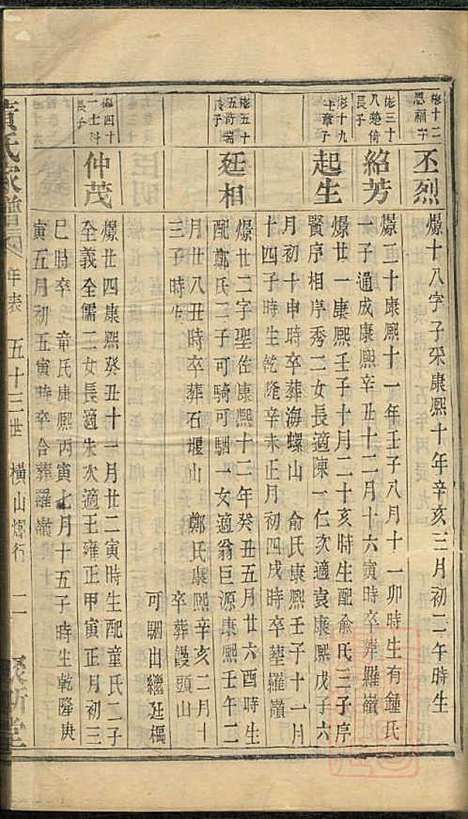 㷫十二
思福子
丕烈
㷫十八字子采康熙十年辛亥三月初二午時生
㷫三十
八
長子
紹芳
㷫二十康熙十一年壬子八月十一卯時生有鍾氏
一子適成康熙辛丑十二月十六寅時卒葬羅嶺
㷫十九
七章子
起生
㷫廿一康熙壬子十月二十亥時生配俞氏三子序
賢序相序秀二女長適陳一仁次適袁康熙戊子六
月初十申時卒葬海螺山 俞氏康熙壬子十一月
十四子時生乾隆辛未正月初四戌時卒葬羅嶺
㷫五十
五
長子
廷相
㷫廿二字聖佐康熙十二年癸丑五月廿六酉時生
配鄭氏二子可騎可駰一女適翁巨源康熙壬午二
月廿八丑時卒葬石堰山 鄭氏康熙辛亥二月十
三子時生 卒葬饅頭山
可駰出繼廷樞
㷫四十
一士
長子
仲茂
㷫廿四康熙癸丑十一月廿二寅時生配童氏二子
全義全儒二女長適朱次適王雍正甲寅正月初三
巳時卒 童氏康熙丙寅七月十五子時生乾隆庚
寅五月初五寅時卒合葬羅嶺
黃氏家譜 年表 五十三世 橫山 行 二